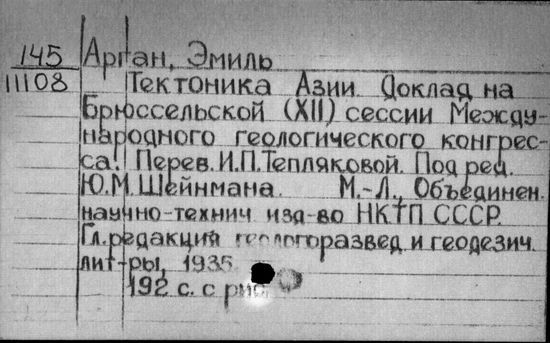 145 Арган, Эмиль
11108 Тектоника Азии. Доклад на
Брюссельской (XII) сессии Между-
народного геологического конгрес-
са. Перев. И.П. Тепляковой. Под ред.
Ю.М. Шейнмана. М.-Л., Объединен.
научно-технич. изд-во НКТП СССР.
Гл. редакция геологоразвед. и геодезич.
лит-ры, 1935.
192 с. с рис.